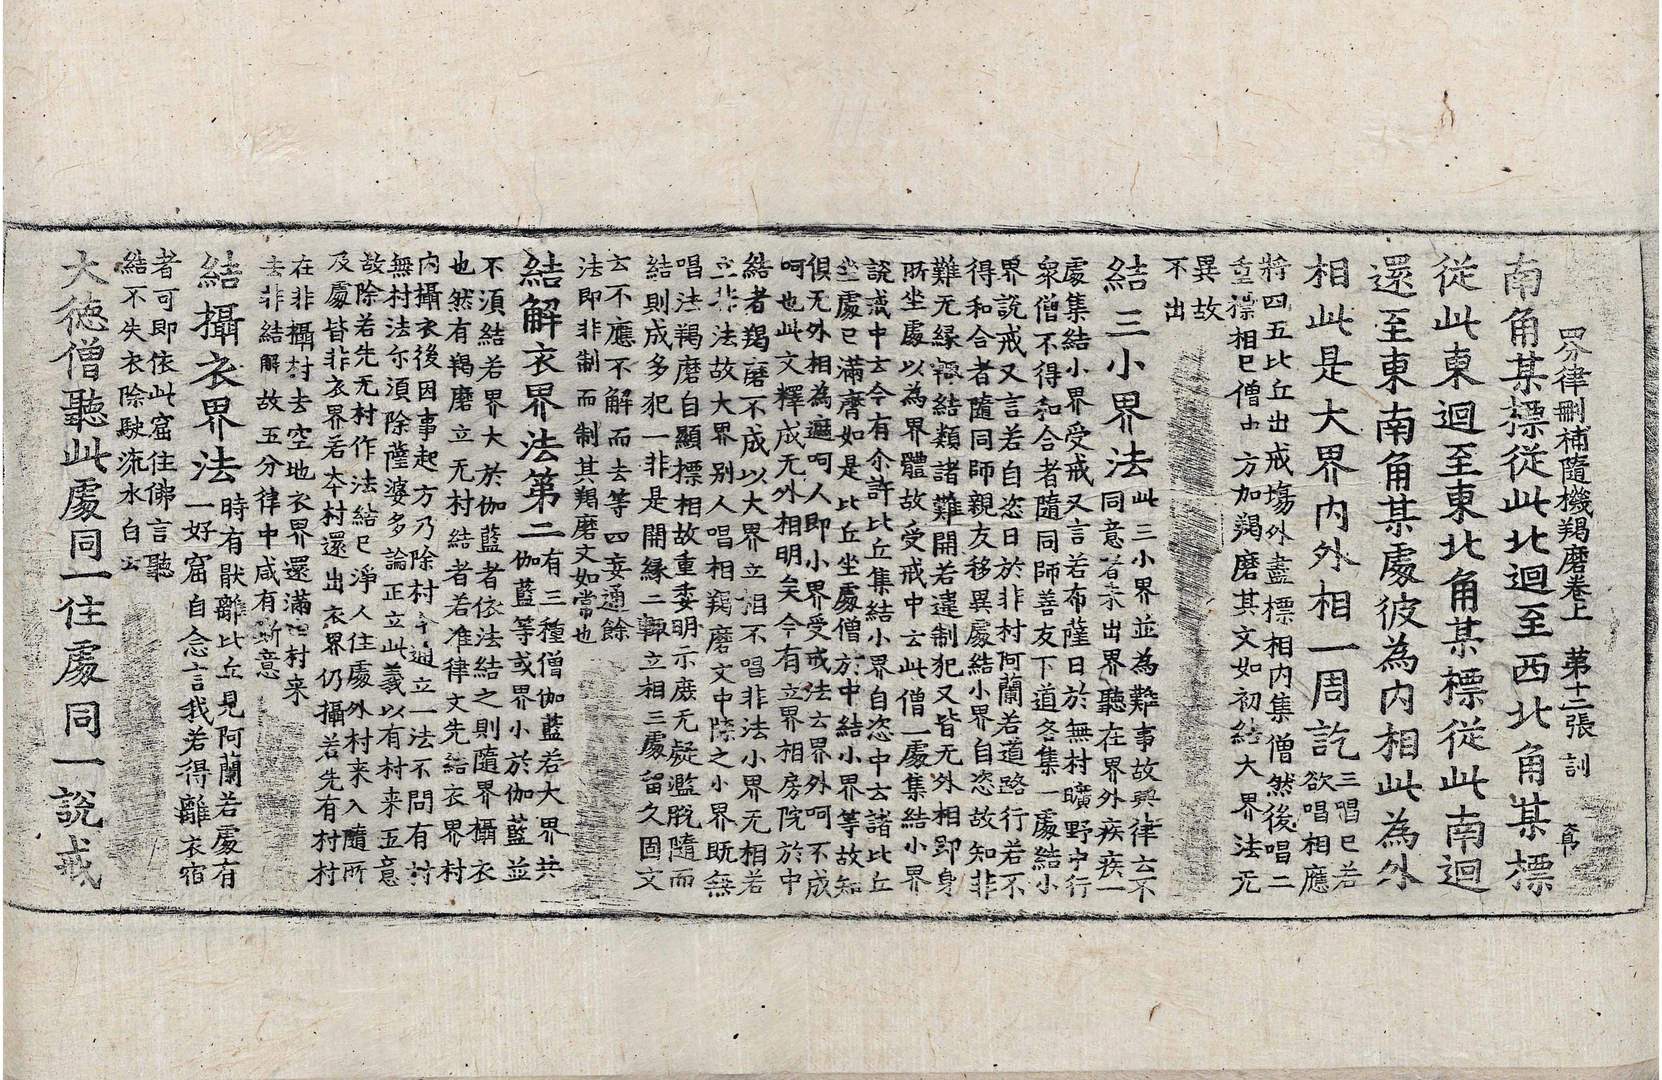 四分律刪補隨機羯磨卷上　第十二張　訓
南角某標從此北迴至西北角某標
從此東迴至東北角某標從此南迴
還至東南角某處彼為內相此為外
相此是大界內外相一周訖三唱已若
欲唱相應
將四五比丘出戒場外盡標相內集僧然後唱二
重標相已僧中方加羯磨其文如初結大界法无
異故
不出
結三小界法此三小界並為難事故興律云不
同意者未出界聽在界外疾疾一
處集結小界受戒又言若布薩日於無村曠野中行
衆僧不得和合者隨同師善友下道各集一處結小
界說戒又言若自恣日於非村阿蘭若道路行若不
得和合者隨同師親友移異處結小界自恣故知非
難无緣輒結類諸難開若違制犯又皆无外相即身
所坐處以為界體故受戒中云此僧一處集結小界
說戒中云今有尒許比丘集結小界自恣中云諸比丘
坐處已滿齊如是比丘坐處僧於中結小界等故知
俱无外相為遮呵人即小界受戒法云界外呵不成
呵也此文釋成无外相明矣今有立界相房院於中
結者羯磨不成以大界立相不唱非法小界无相若
立非法故大界別人唱相羯磨文中除之小界既無
唱法羯磨自顯標相故重委明示庶无疑濫脫隨而
結則成多犯一非是開緣二輒立相三處留久固文
云不應不解而去等四妄通餘
法即非制而制其羯磨文如常也
結解衣界法第二有三種僧伽藍若大界共
伽藍等或界小於伽藍並
不須結若界大於伽藍者依法結之則隨界攝衣
也然有羯磨立无村結者若准律文先結衣界村
內攝衣後因事起方乃除村今通立一法不問有村
無村法尒須除薩婆多論正立此義以有村来五意
故除若先无村作法結已淨人住處外村来入隨所
及處皆非衣界若本村還出衣界仍攝若先有村村
在非攝村去空地衣界還滿 村来
去非結解故五分律中咸有斯意
結攝衣界法時有猒離比丘見阿蘭若處有
一好窟自念言我若得離衣宿
者可即依此窟住佛言聽
結不失衣除駛流水白云
大德僧聽此處同一住處同一說戒